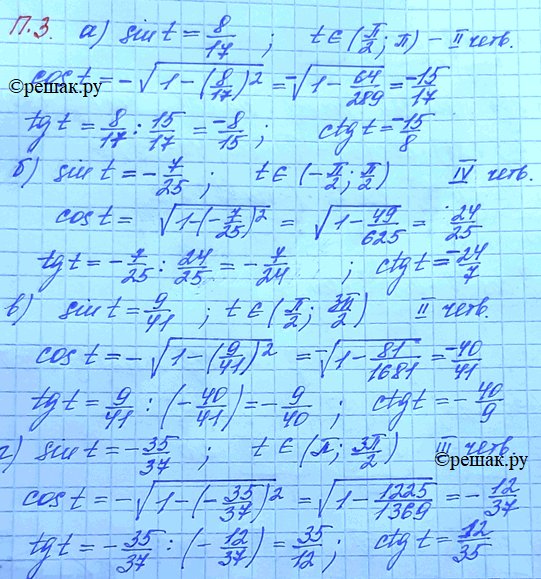 П.3. а) sin t = 8/17 ; t ∈ (π/2; π) – II четв.
cos t = -√(1-(8/17)²) = -√(1-64/289) = -15/17
©решак.ру
tg t = 8/17 : 15/17 = -8/15 ; ctg t = -15/8
б) sin t = -7/25 ; t ∈ (-π/2; π/2) IV четв.
cos t = √(1-(-7/25)²) = √(1-49/625) = 24/25
tg t = -7/25 : 24/25 = -7/24 ; ctg t = -24/7
в) sin t = 9/41 ; t ∈ (π/2; 3π/2) II четв.
cos t = -√(1-(9/41)²) = -√(1-81/1681) = -40/41
tg t = 9/41 : (-40/41) = -9/40 ; ctg t = -40/9
г) sin t = -35/37 ; t ∈ (π; 3π/2) III четв.
©решак.ру
cos t = -√(1-(-35/37)²) = √(1-1225/1369) = -12/37
tg t = -35/37 : (-12/37) = 35/12 ; ctg t = 12/35